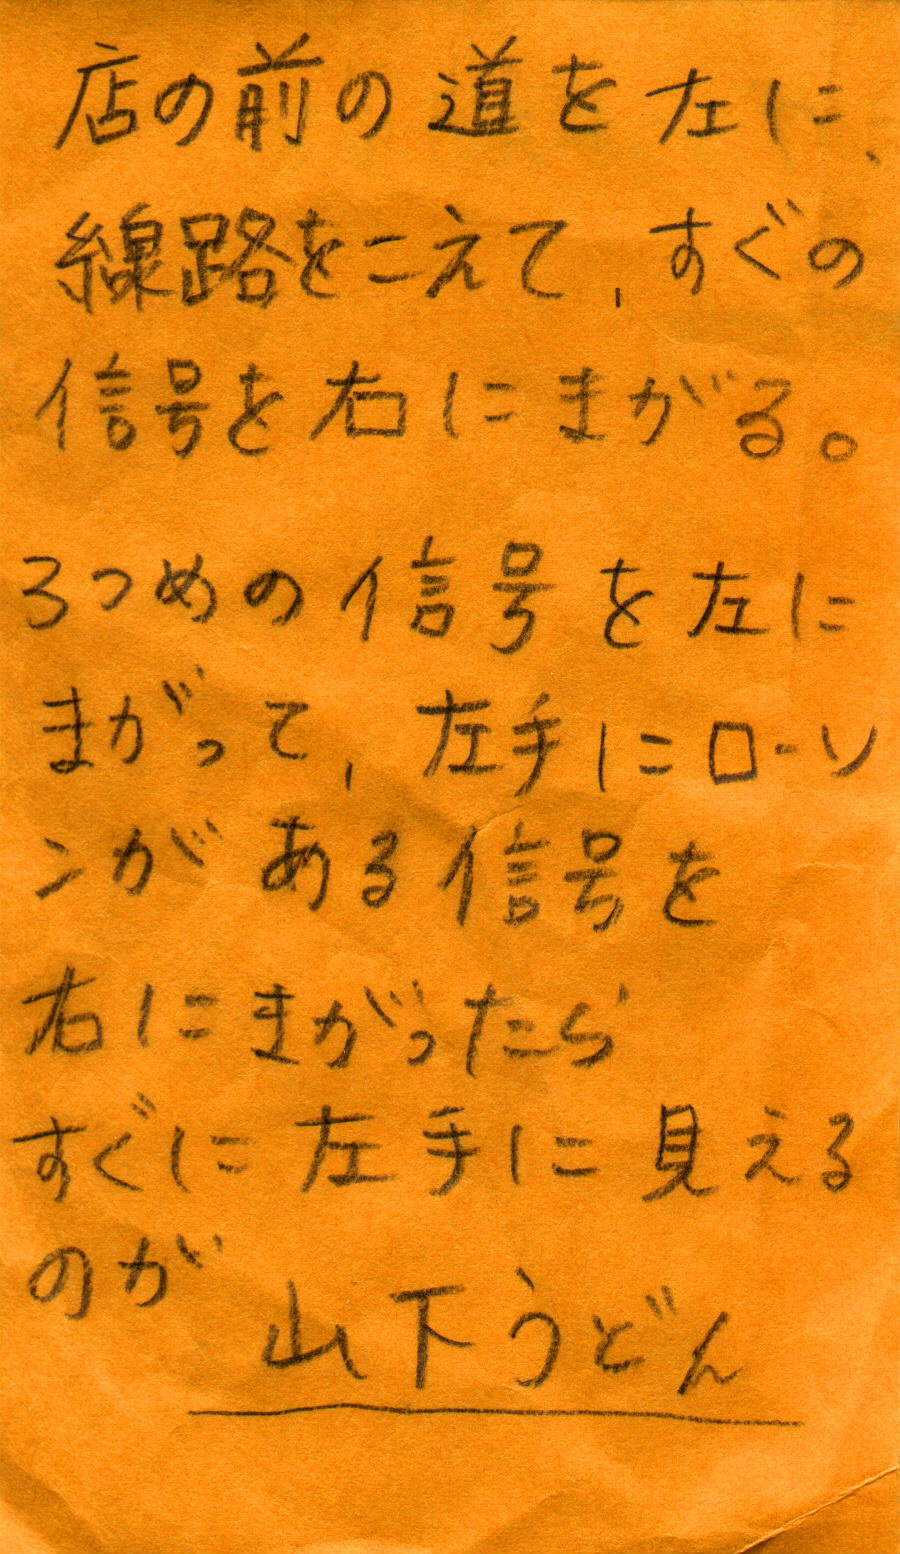 店の前の道を左に、
線路をこえて、すぐの
信号を右にまがる。
3つめの信号を左に
まがって、左手にローソ
ンがある信号を
右にまがったら
すぐに左手に見える
のが
山下うどん